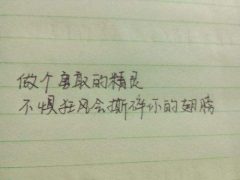 做个勇敢的精灵
不惧狂风会撕碎你的翅膀